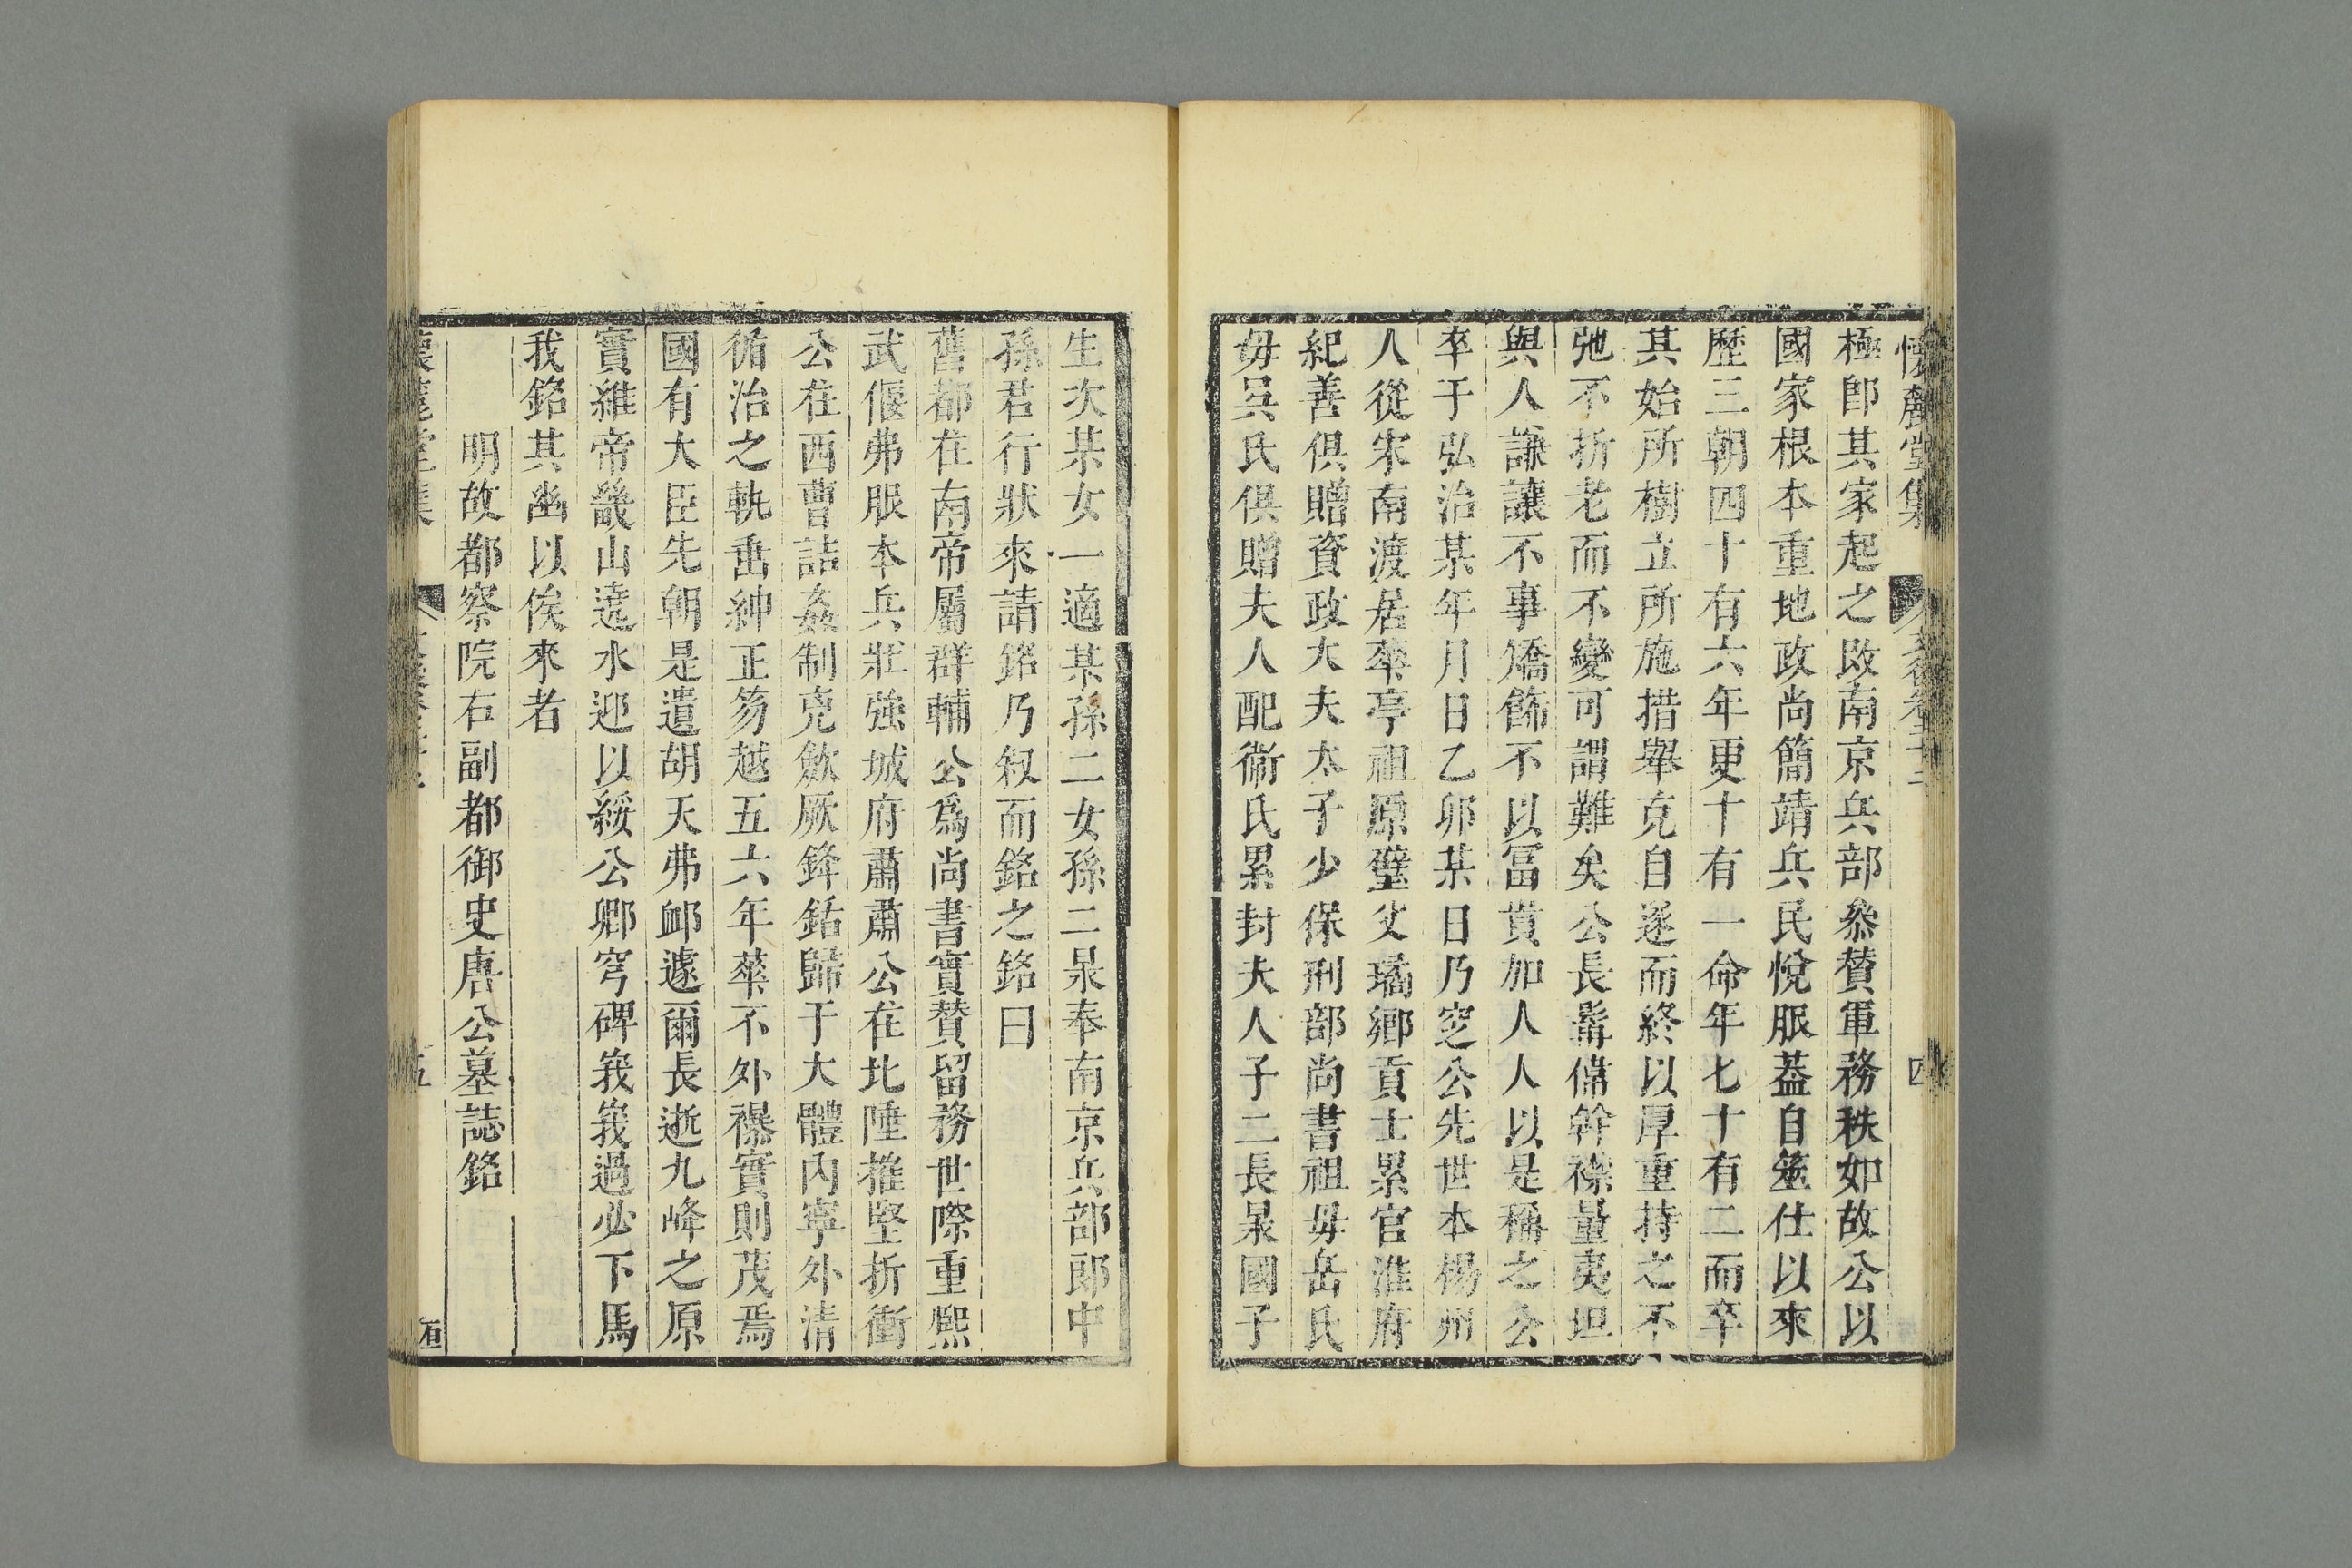 懷麓堂集 文後卷二十二 四
極即其家起之改南京兵部叅賛軍務秩如故公以
國家根本重地政尚簡靖兵民悅服葢自筮仕以來
歷三朝四十有六年更十有一命年七十有二而卒
其始所樹立所施措舉克自遂而終以厚重持之不
弛不折老而不變可謂難矣公長髯偉幹襟量夷坦
與人謙讓不事矯飾不以冨貴加人人以是稱之公
卒于弘治某年月日乙卯某日乃窆公先世本楊州
人從宋南渡居華亭祖原璧父璚鄉貢士累官淮府
紀善俱贈資政大夫太子少保刑部尚書祖毋岳氏
毋吳氏俱贈夫人配衛氏累封夫人子二長杲國子
生次某女一適某孫二女孫二杲奉南京兵部郎中
孫君行狀來請銘乃叙而銘之銘曰
舊都在南帝屬群輔公爲尚書實賛留務世際重熙
武偃弗服本兵壯強城府肅肅公在北陲摧堅折衝
公在西曹詰姦制兇斂厥鋒銛歸于大體內寧外清
循治之軌垂紳正笏越五六年華不外襮實則茂焉
國有大臣先朝是遺胡天弗䘏遽爾長逝九峰之原
實維帝畿山遶水迎以綏公卿穹碑峩峩過必下馬
我銘其幽以俟來者
明故都察院右副都御史唐公墓誌銘
懷麓堂集 五